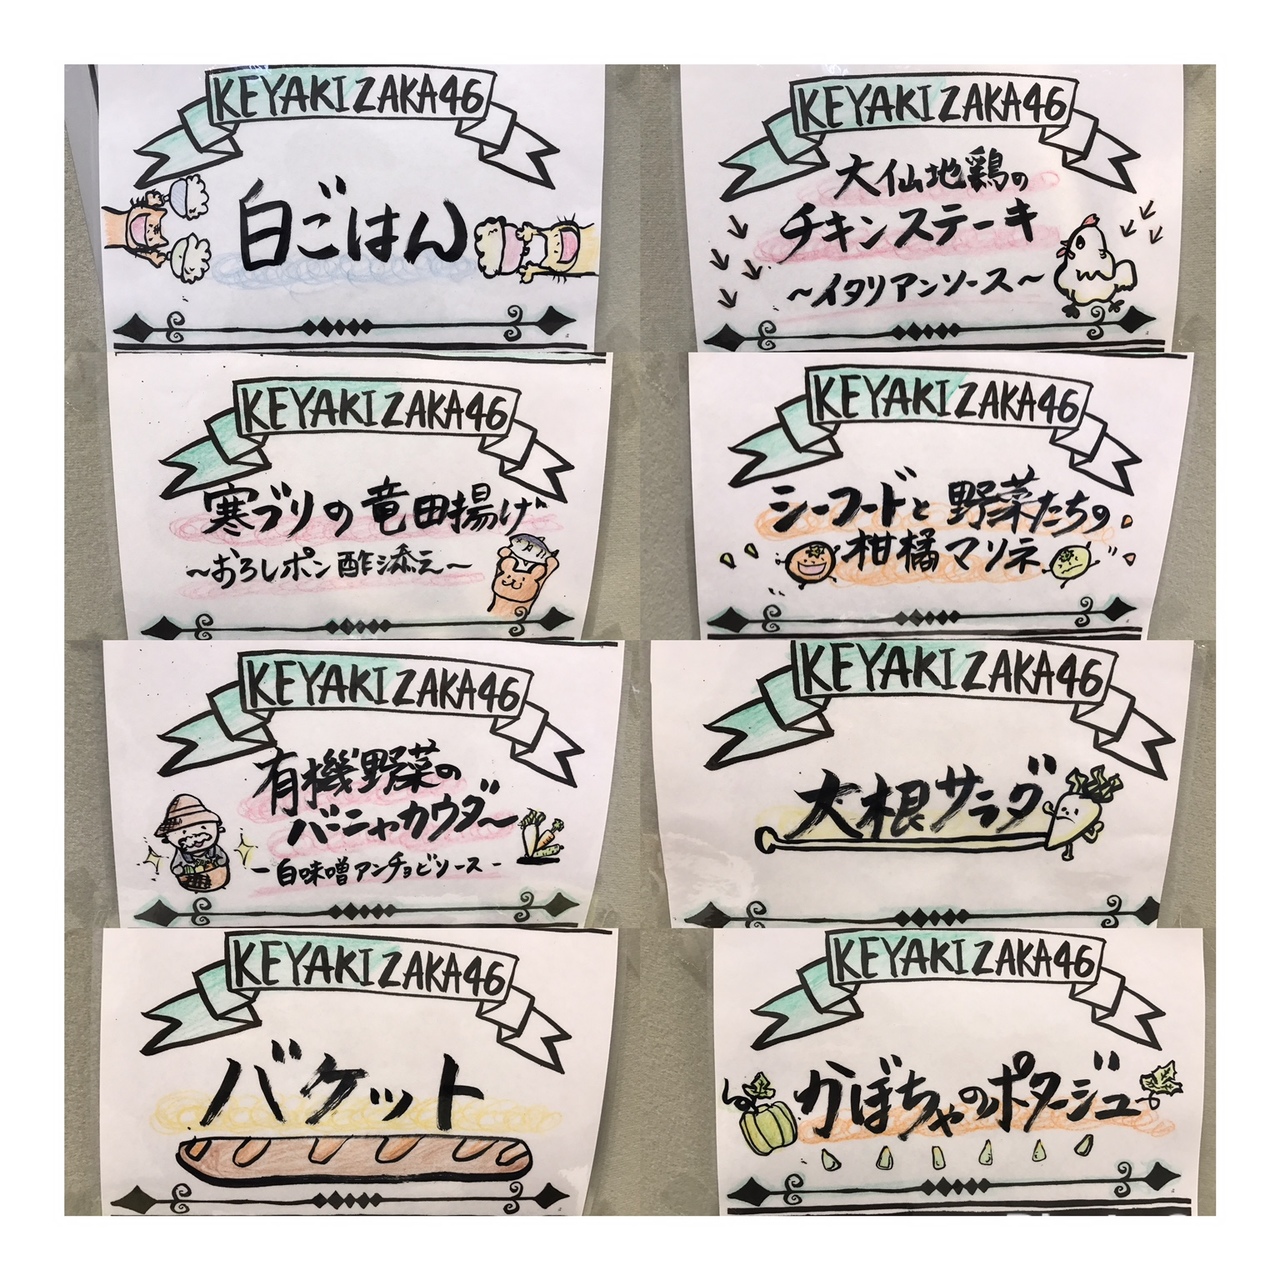 KEYAKIZAKA46
白ごはん
KEYAKIZAKA46
大仙地鶏の
チキンステーキ
~イタリアンソース~
KEYAKIZAKA46
寒ブリの竜田揚げ
~おろしポン酢添え~
KEYAKIZAKA46
シーフードと野菜たちの
柑橘マリネ
KEYAKIZAKA46
有機野菜の
バーニャカウダ~
-白味噌アンチョビソース-
KEYAKIZAKA46
大根サラダ
KEYAKIZAKA46
バケット
KEYAKIZAKA46
かぼちゃのポタージュ